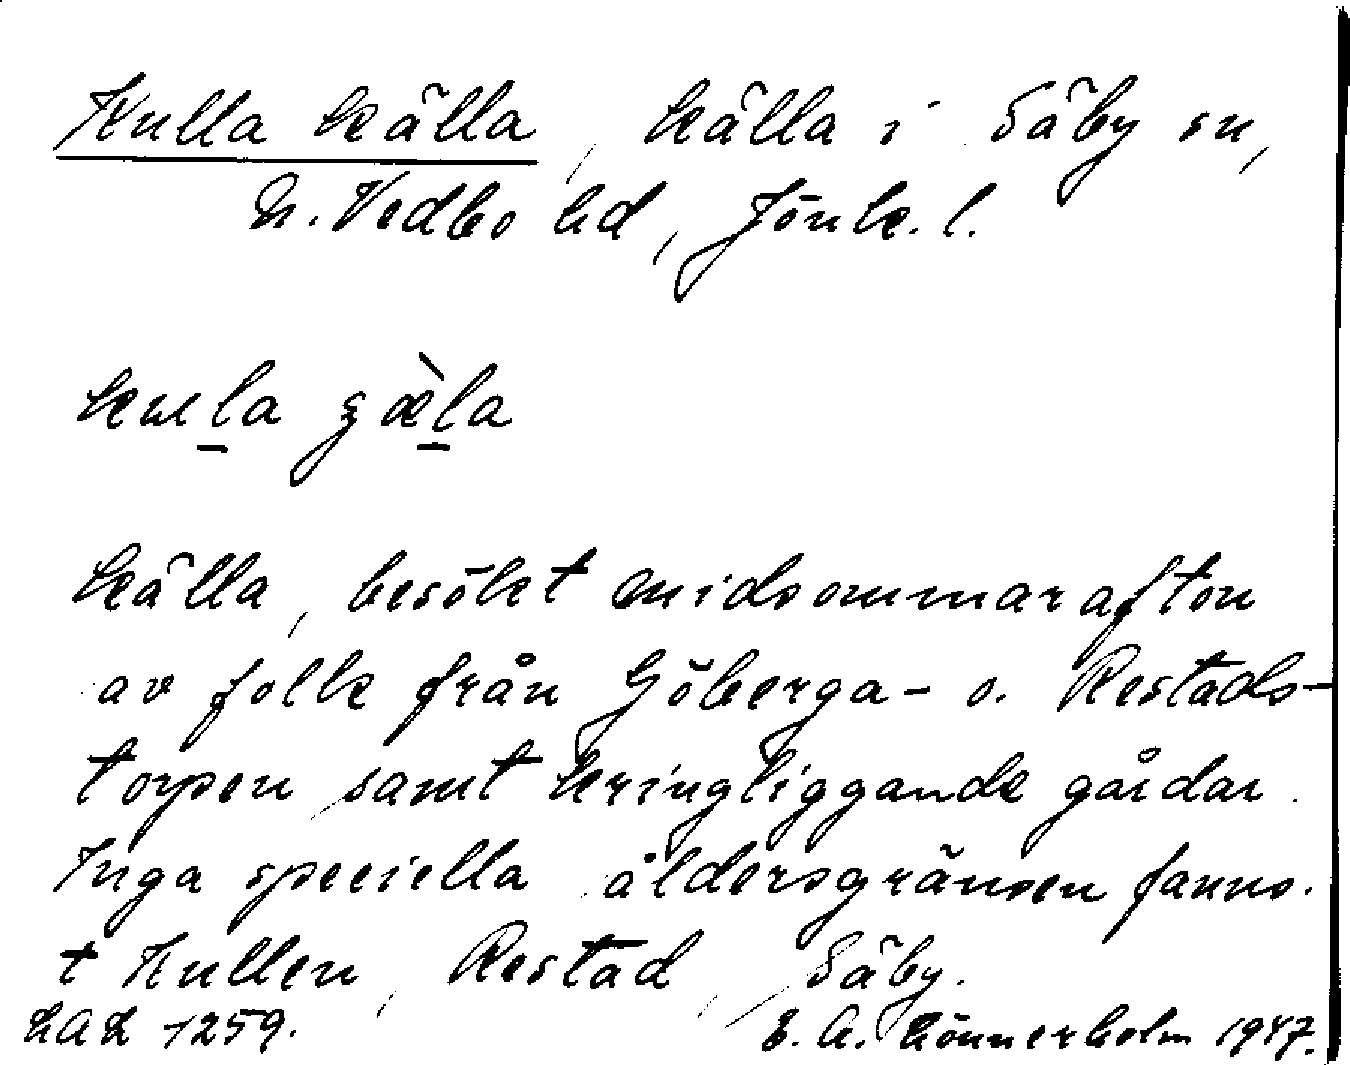 Kulla källa, källa i Säby sn,
N. Vedbo hd, Jönk. l.
kula ꞔæ̀la
källa, besökt midsommarafton
av folk från Göberga- o. Restads-
torpen samt kringliggande gårdar.
Inga speciella åldersgränsen fanns.
t Kullen, Restad, Säby.
LAL 1259.
E. A. Lönnerholm 1947.